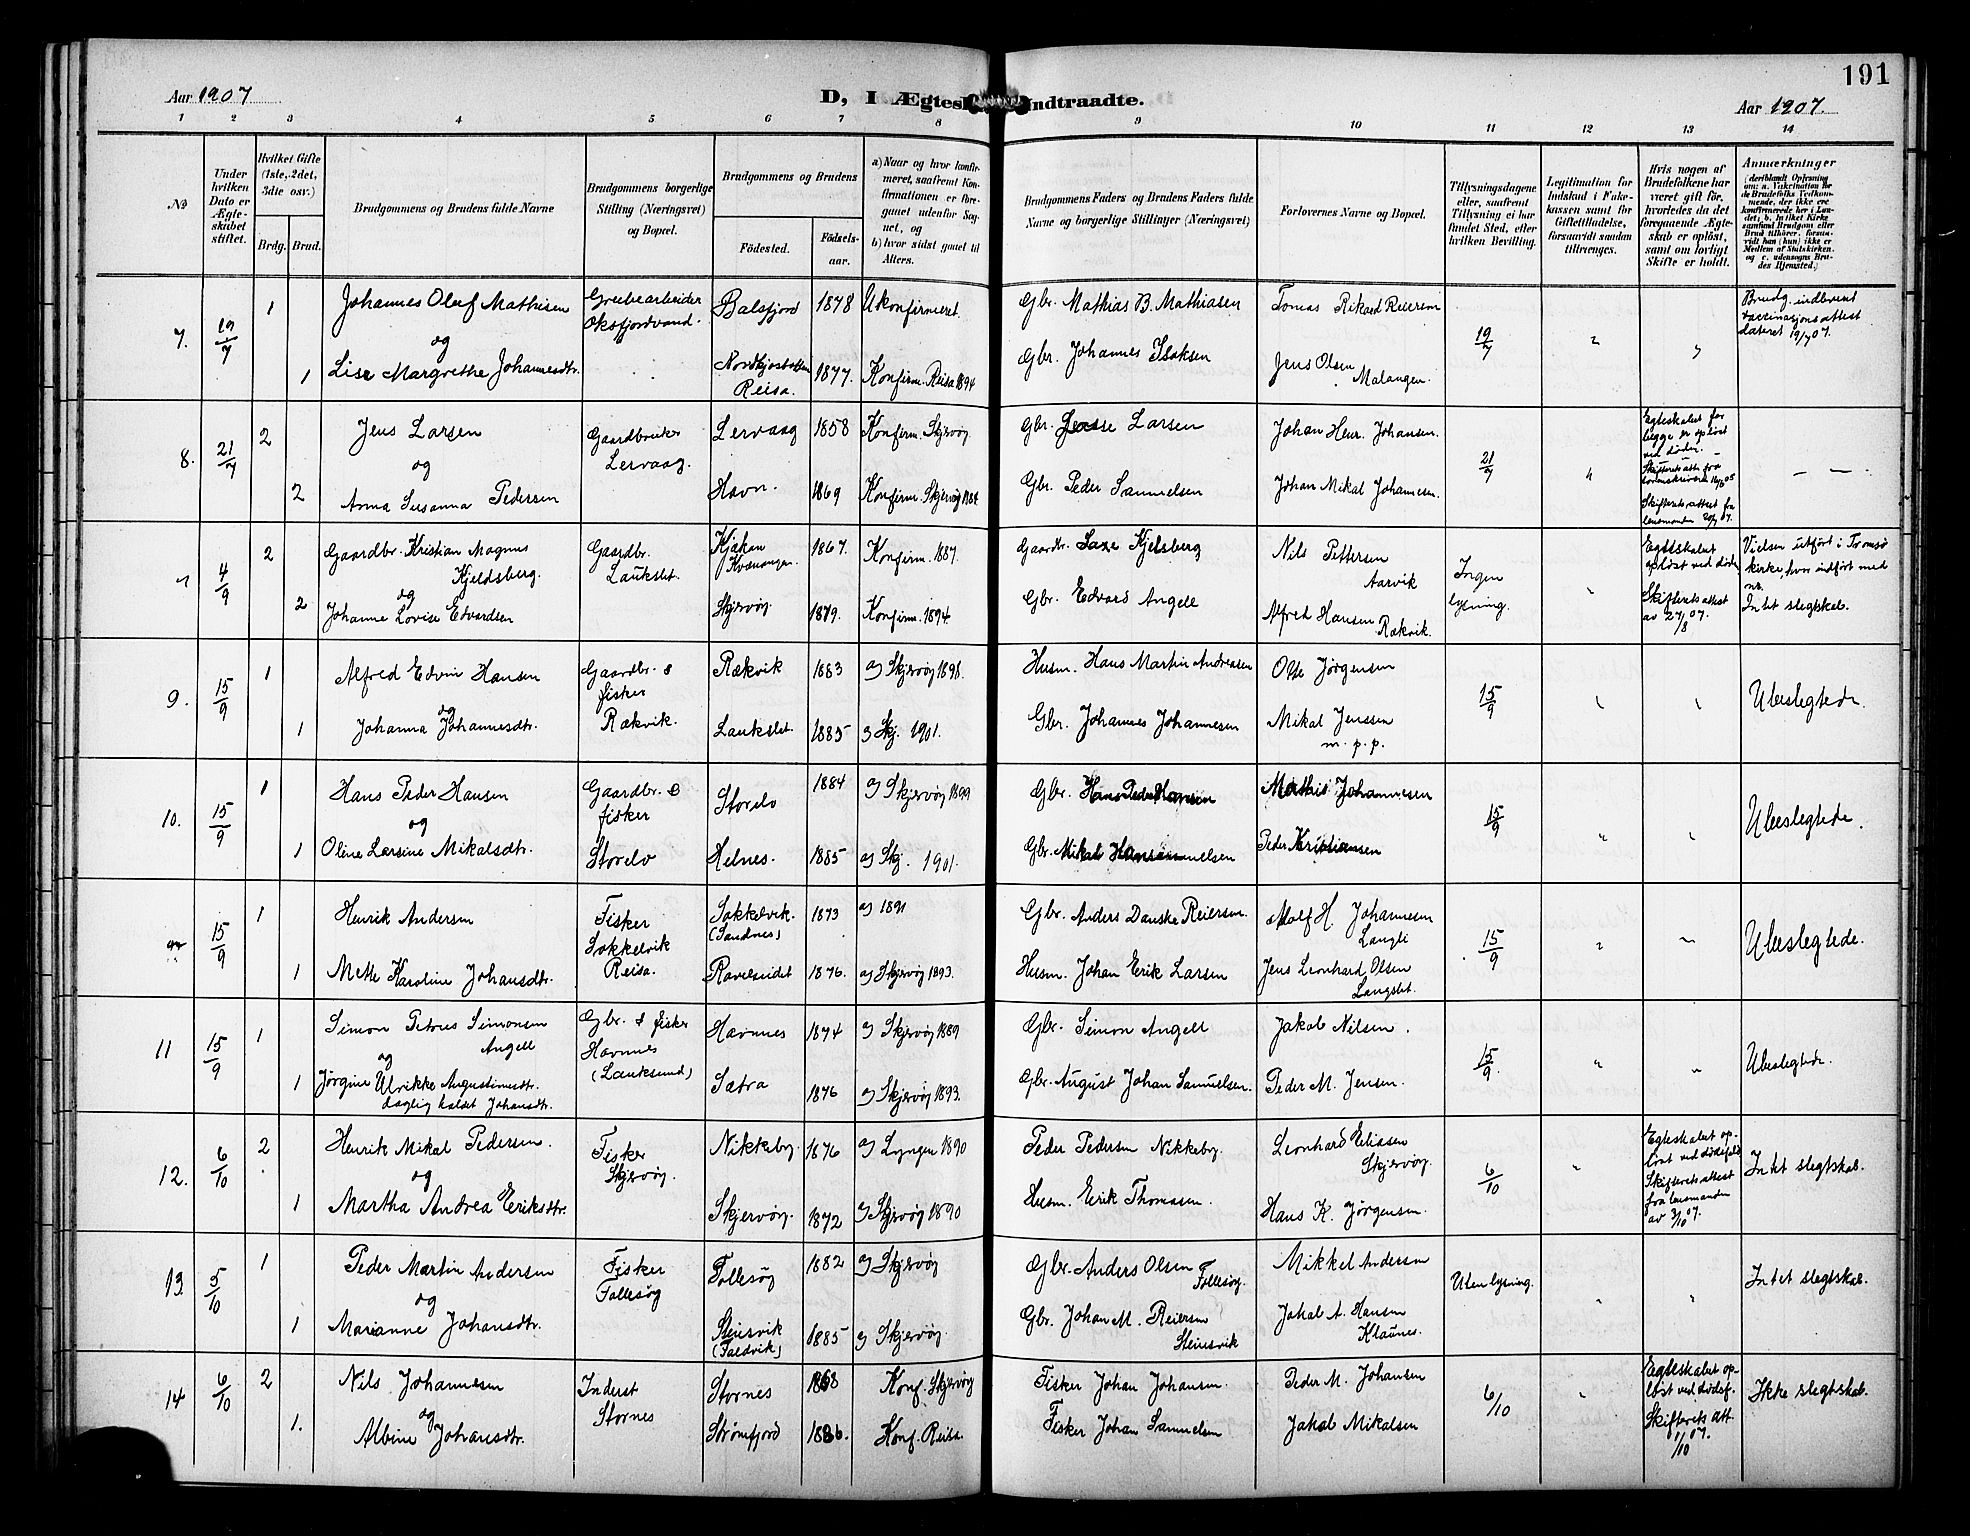 191
Aar 1907
D, I Ægtes
Indtraadte.
Aar 1907.
1 2 3 4 5 6 7 8 9 10 11 12 13 14
№
Under hvilken Dato er Ægteskabet stiftet.
Hvilket Gifte (1ste, 2det, 3die osv.)
Brdg. Brud.
Brudgommens og Brudens fulde Navne
Brudgommens borgerlige Stilling (Næringsvei) og Bopæl.
Brudgommens og Brudens
Fødested.
Fødselsaar.
a) Naar og hvor konfirmeret, saafremt Konfirmationen er foregaaet udenfor Sognet, og
b) hvor sidst gaaet til Alters.
Brudgommens Faders og Brudens Faders fulde Navne og borgerlige Stillinger (Næringsvei)
Forlovernes Navne og Bopæl.
Tillysningsdagene eller, saafremt Tillysning ei har fundet Sted, efter hvilken Bevilling.
Legitimation for Indskud i Enkekassen samt for Giftetilladelse, forsaavidt saadan tiltrænges.
Hvis nogen af Brudefolkene har været gift før, hvorledes da det foregaaende Ægteskab er opløst, samt om lovligt Skifte er holdt.
Anmærkninger
(deriblandt Oplysning om: a. Vaccination for de Brudefolks Vedkommende, der ikke ere konfirmerede her i Landet; b. hvilket Kirkesamfund Brudgom eller Brud tilhører, forsaavidt han (hun) ikke er Medlem af Statskirken, og c. udensogns Brudes Hjemsted.)
7. 19/7 1 Johannes Oluf Mathisen Grubearbeider Balsfjord 1878 Ukonfirmeret. Gbr. Mathias B. Mathiasen Tomas Rikard Reiersen 19/7 " " Brudg. indleveret
og Oksfjordvand. vaccinasjonsattest
dateret 19/7 07.
1 Lise Margrethe Johannesdtr. Reisa. 1877. Konfirm. Reisa 1894 Gbr. Johannes Isaksen Jens Olsen
Malangen.
8. 21/7 2 Jens Larsen Gaardbruker Lervaag 1858 Konfirm. Skjervøy Gbr. Lasse Larsen Johan Henr. Johansen. 21/7 " Egteskabet for
og Lervaag. begge er opløst
ved døden.
2 Anna Susanna Pedersen Havn. 1869 Konfirm. Skjervøy Gbr. Peder Samuelsen Johan Mikal Johannesen. Skifterets att. fra
sorenskriveren
Skifterets attest fra
lensmanden 20/7 07. — —
7 4/9 2 Gaardbr. Kristian Magnus Gaardbr. Kjækan 1867. Konfirm. 1887. Gaardbr. Saxe Kjelsberg Nils Pettersen Ingen " Egteskabet Vielsen utført i Tromsø
Kjeldsberg. Laukslet. Kvænangen. Aarvik lysning. opløst ved døden, kirke, hvor indført med
og no.
2 Johanne Lovise Edvardsen Skjervøy 1879. Konfirm. 1894. Gbr. Edvard Angell Alfred Hansen Skifterets attest Intet slegtskab.
Rækvik. av 27/8 07.
9. 15/9 1 Alfred Edvin Hansen Gaardbr. & Rækvik 1883 a) Skjervøy 1898. Husm. Hans Martin Andreasen Jørgensen 15/9 " " Ubeslegtede.
og fisker
1 Johanna Johannesdtr. Rækvik. Laukslet. 1885 Skj. 1901. Gbr. Johannes Johannesen Mikal Jenssen
m. p. p.
10. 15/9 1 Hans Peder Hansen Gaardbr. & Storelv 1884 a) Skjervøy 1899 Gbr. Hans Peder Hansen Mathis Johannesen 15/9 " " Ubeslegtede.
og fisker
1 Oline Larsine Mikalsdtr. Storelv Helnes. 1885 a) Skj. 1901. Gbr. Mikal Peder Kristiansen
15/9 1 Henrik Andersen Fisker Sokkelvik. 1873 a) 1891 Gbr. Anders Danske Reiersen. H. Johannesen 15/9 " " Ubeslegtede.
Sokkelvik (Sandnes) Langli
1 Mette Karoline Johansdtr. Reisa. Ravelseidet 1876. a) Skjervøy 1893. Husm. Johan Erik Larsen Jens Leonhard Olsen
Langslet.
11 15/9 1 Simon Petrus Simonsen Gbr. & fisker Havnnes 1874 a) Skjervøy 1889 Gbr. Simon Angell Jakob Nilsen. 15/9 " " Ubeslegtede.
Angell Havnnes
og (Lauksund)
1 Jørgine Ulrikke Augustinusdtr. Sætra 1876 a) Skjervøy 1893. Gbr. August Johan Samuelsen. Peder M. Jensen.
daglig kaldet Johansdtr.
12. 6/10 2 Henrik Mikal Pedersen. Fisker Nikkeby 1876 a) Lyngen 1890 Peder Pedersen Nikkeby. Leonhard Eliasen 6/10 " Egteskabet op- Intet slegtskab.
og Skjervøy. Skjervøy. løst ved dødsfald
Skifterets attest
1 Martha Andrea Eriksdtr. Skjervøy. 1872 a) Skjervøy 1890 Husm. Erik Thomasen. Hans K. Jørgensen. fra lensmanden
av 3/10 07.
13. 5/10 1 Peder Martin Andersen Fisker Follesøy 1882 a) Skjervøy Gbr. Anders Olsen Mikkel Andersen Uten lysning. " " Intet slegtskab.
og Follesøy Follesøy.
1 Marianne Johansdtr. Steinsvik 1885 a) Skjervøy Gbr. Johan M. Reiersen Jakob A. Hansen
(Faldvik) Steinsvik Klaunes.
14 6/10 2 Nils Johannesen Inderst Stornes 1868 Konf. Skjervøy Fisker Johan Johansen. Peder M. Johansen 6/10 " Egteskabet op- Ikke slegtskab.
og Stornes løst ved dødsf.
1. Albine Johansdtr. Strømfjord 1886. Konf. Reisa Fisker Johan Samuelsen Jakob Mikalsen Skifterets att.
1/10 07.